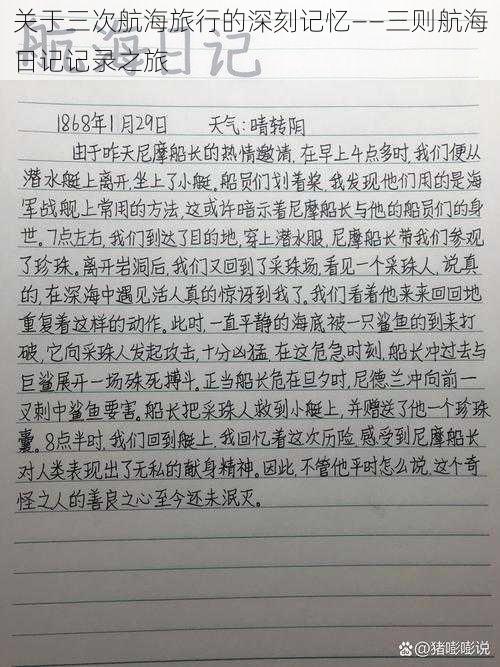 关于三次航海旅行的深刻记忆——三则航海
日记记录之旅
航海日记
1868年1月29日 天气:晴转阴
由于昨天尼摩船长的热情邀请,在早上4点多时,我们便从
潜水艇上离开,坐上了小艇。船员们划着桨,我发现他们用的是海
军战舰上常用的方法,这或许暗示着尼摩船长与他的船员们的身
世。7点左右,我们到达了目的地,穿上潜水服,尼摩船长带我们参观
了珍珠。离开岩洞后,我们又回到了采珠场,看见一个采珠人,说真
的,在深海中遇见活人真的惊讶到我了。我们看着他来来回回地
重复着这样的动作。此时,一直平静的海底被一只鲨鱼的到来打
破,它向采珠人发起攻击,十分凶猛,在这危急时刻,船长冲过去与
巨鲨展开一场殊死搏斗。正当船长危在旦夕时,尼德兰冲向前一
叉刺中鲨鱼要害。船长把采珠人救到小艇上,并赠送了他一个珍珠
囊。8点半时,我们回到艇上,我回忆着这次历险,感受到尼摩船长
对人类表现出了无私的献身精神。因此,不管他平时怎么说,这个奇
怪之人的善良之心至今还未泯灭。
@猪嘭嘭说